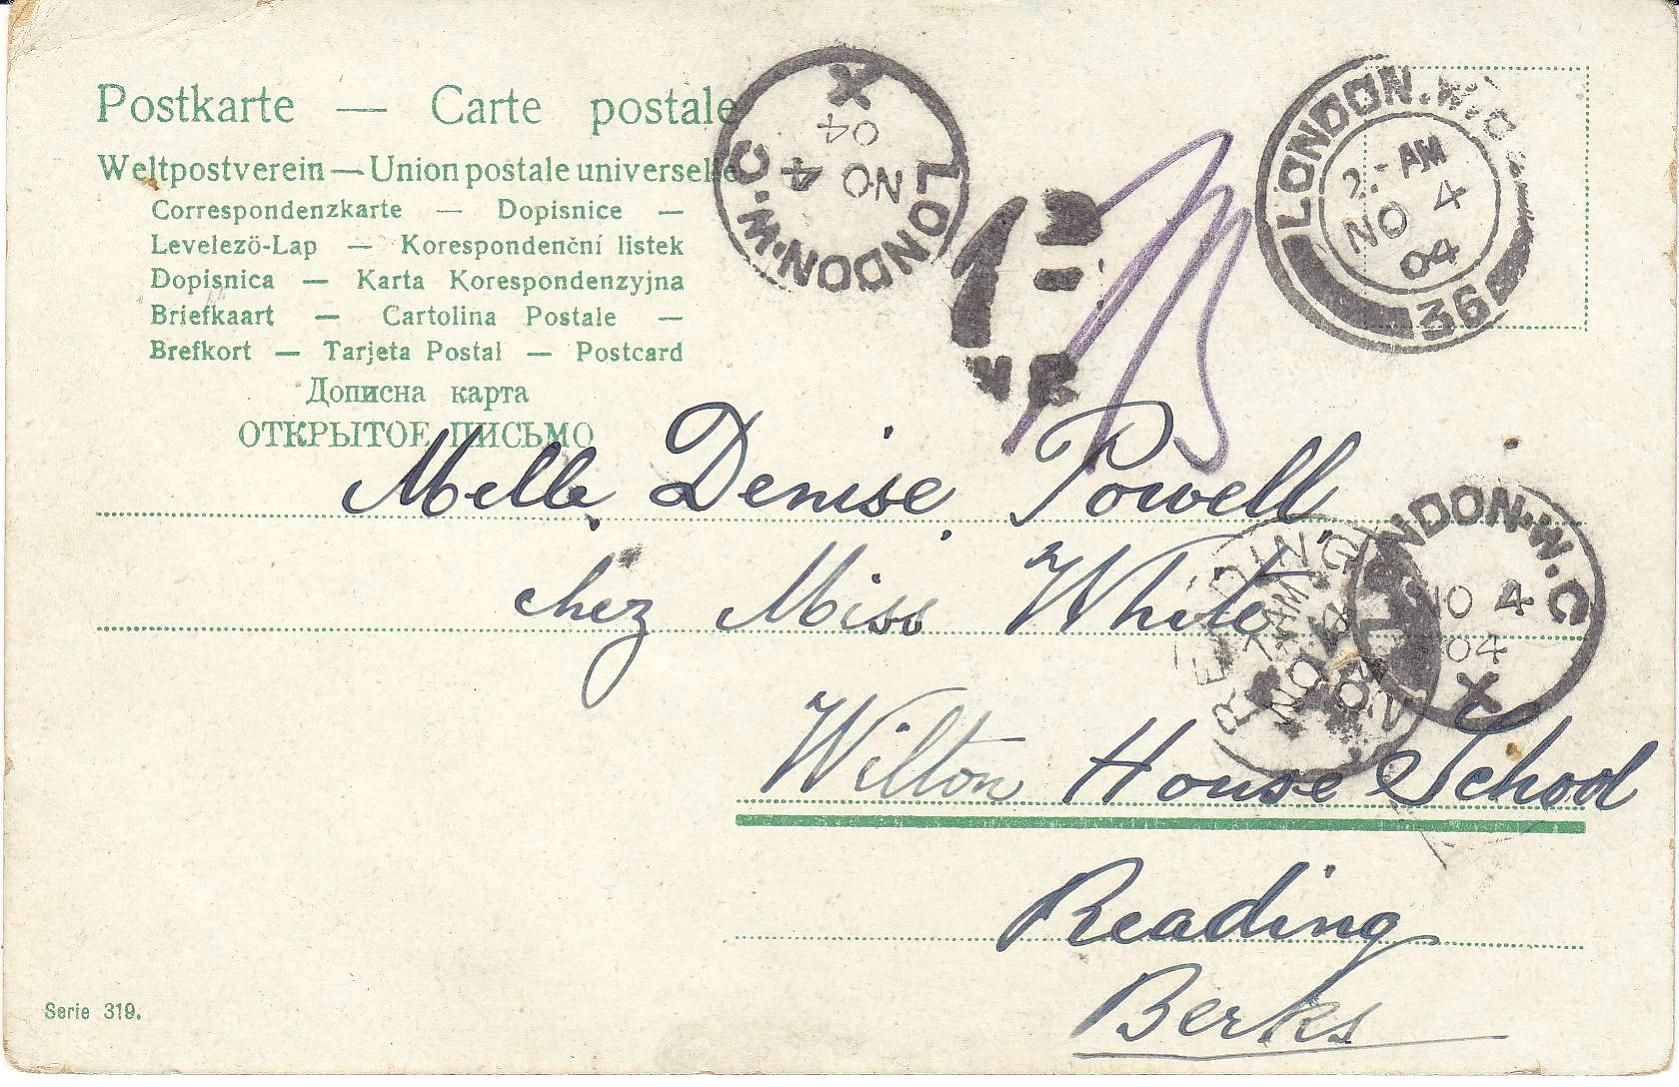 Postkarte — Carte postale
Weltpostverein — Union postale universelle
Correspondenzkarte — Dopisnice —
Levelezö-Lap — Korespondenční listek
Dopisnica — Karta Korespondenzyjna
Briefkaart — Cartolina Postale —
Brefkort — Tarjeta Postal — Postcard
Дописна карта
ОТКРЫТОЕ ПИСЬМО
LONDON.W.C
X
NO 4
04
LONDON.W.C.
2.- AM
NO 4
04
36
Melle Denise Powell
chez Miss White
LONDON.W.C
NO 4
04
X
READING
AM
NO 4
04
Wilton House School
Reading
Berks
Serie 319.